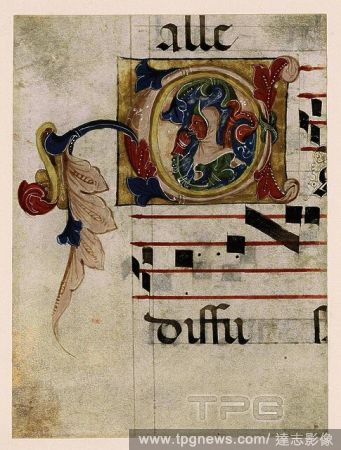 alle
diffu s
TPG
www.tpgnews.com/ 達志影像